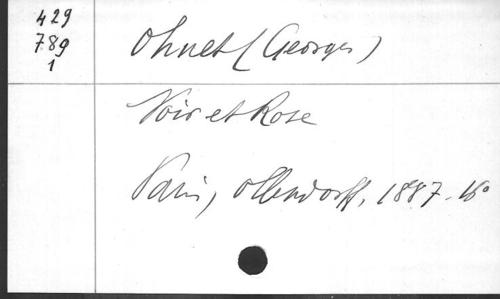 429
789
1
Ohnet (Georges)
Noir et Rose
Paris, Ollendorff, 1887 - 16°